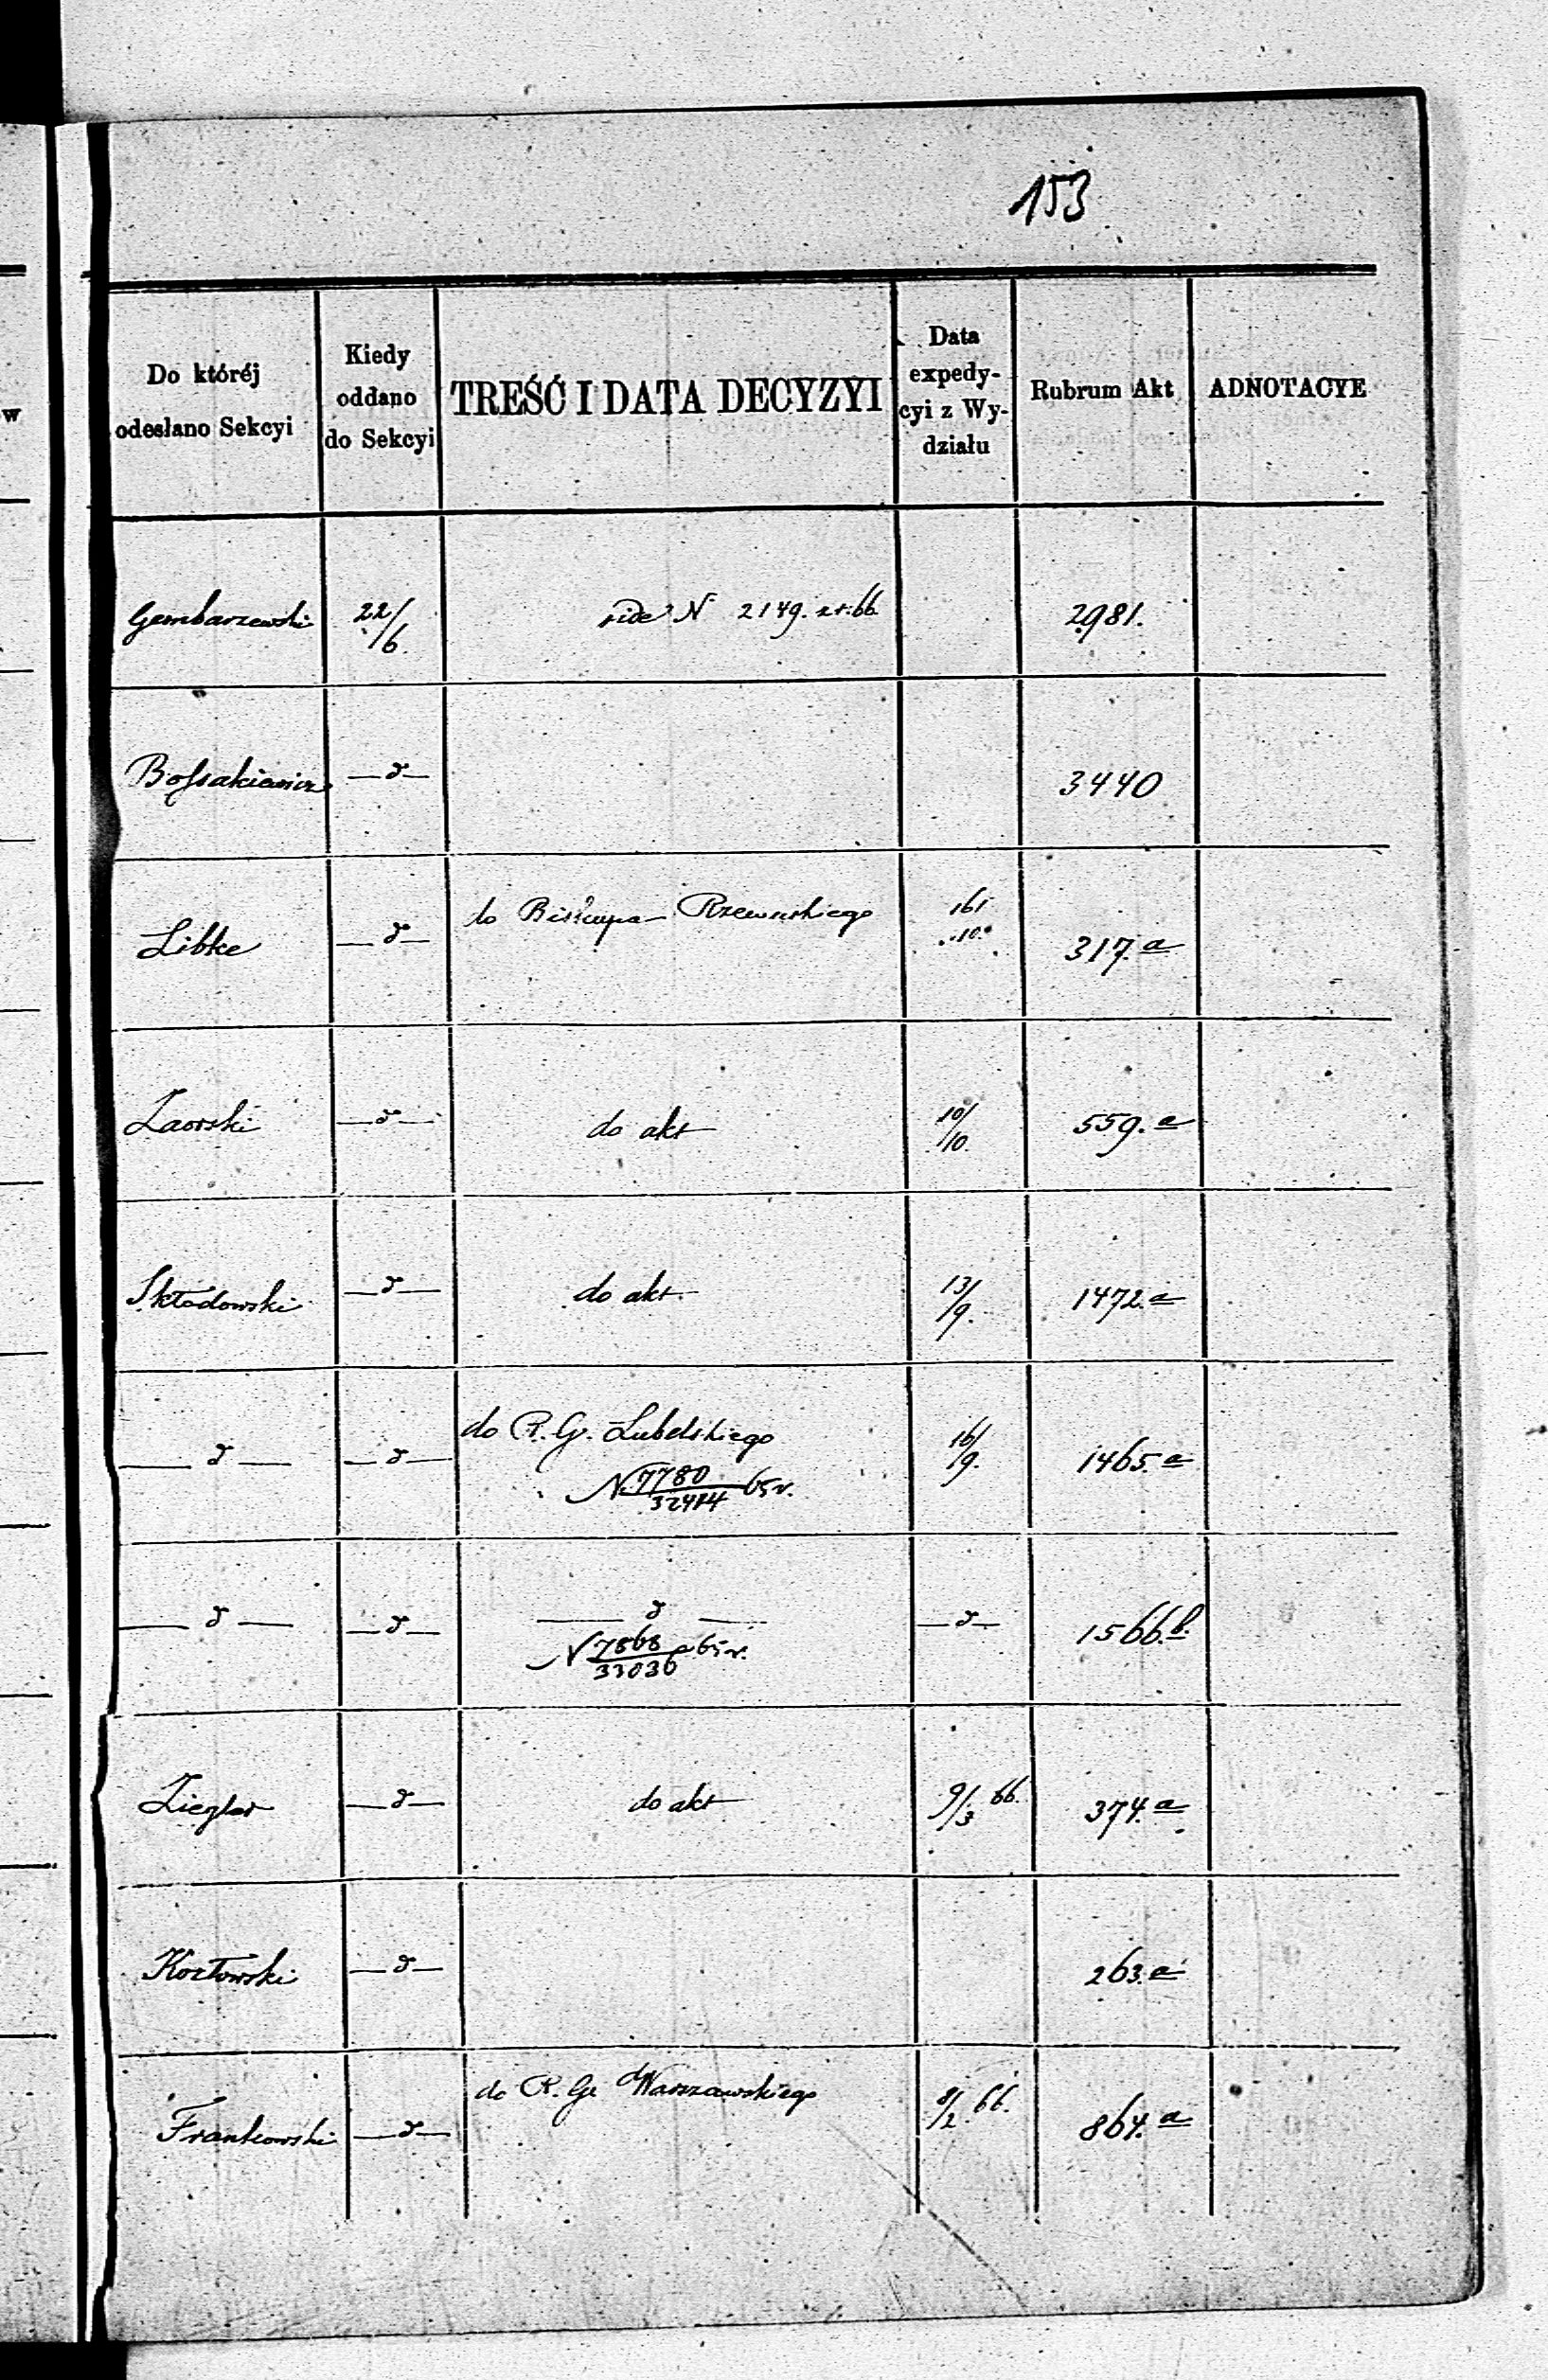 153
w
Do któréj odesłano Sekcyi
Kiedy oddano do Sekcyi
TREŚĆ I DATA DECYZYI
Data expedycyi z Wydziału
Rubrum Akt
ADNOTACYE
Gembarzewski 22/6 vide N 2149. z r. 66. 2981.
Bossakiewicz —d— 3440
Libke —d— do Biskupa Rzewuskiego 16/10. 317.a
Zaorski —d— do akt 10/10. 559.a
Skłodowski —d— do akt. 13/9. 1472.a
—d— —d— do R. G. Lubelskiego 16/9. 1465.a
N. 7780/32414 65 r.
—d— —d— —d— —d— 1566.b.
N 7868/33036 65 r.
Ziegler —d— do akt 9/3 66. 374.a
Kozłowski —d— 263.a
Frankowski —d— do R. Gu Warszawskiego 8/2 66. 864.a